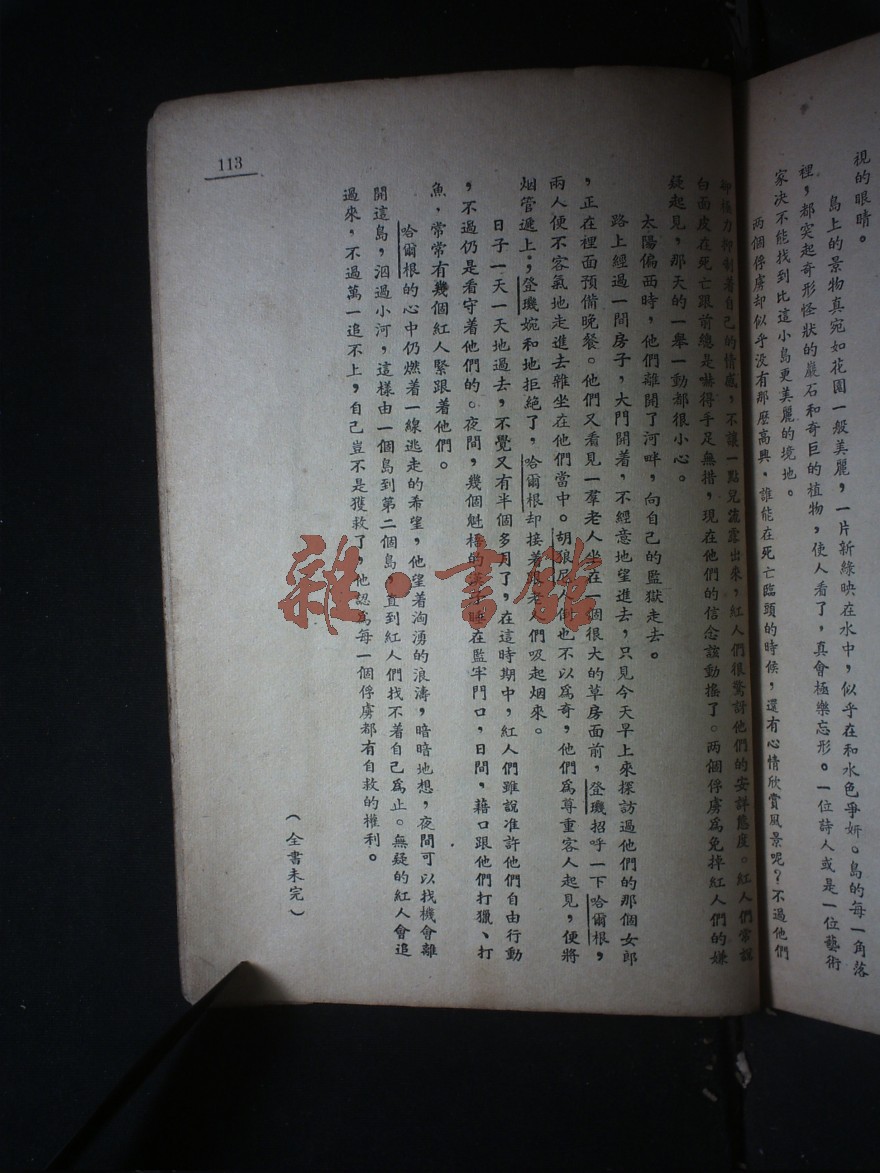 視的眼睛。
島上的景物真宛如花園一般美麗，一片新綠映在水中，似乎在和水色爭妍。島的每一角落
裡，都突起奇形怪狀的巖石和奇巨的植物，使人看了，真會極樂忘形。一位詩人或是一位藝術
家决不能找到比這小島更美麗的境地。
两個俘虜却似乎没有那麼高興，誰能在死亡臨頭的時候，還有心情欣賞風景呢？不過他們
却極力抑制着自己的情感，不讓一點兒流露出來，紅人們很驚訝他們的安詳態度。紅人們常說
白面皮在死亡跟前總是嚇得手足無措，現在他們的信念該動搖了。两個俘虜爲免掉紅人們的嫌
疑起見，那天的一舉一動都很小心。
太陽偏西時，他們離開了河畔，向自己的監獄走去。
路上經過一間房子，大門開着，不經意地望進去，只見今天早上來探訪過他們的那個女郎
，正在裡面預備晚餐。他們又看見一羣老人坐在一個很大的草房面前，登璣招呼一下哈爾根，
兩人便不客氣地走進去雜坐在他們當中。胡狼尼人倒也不以爲奇，他們爲尊重客人起見，便將
烟管遞上；登璣婉和地拒絶了，哈爾根却接着跟老人們吸起烟來。
日子一天一天地過去，不覺又有半個多月了，在這時期中，紅人們雖說准許他們自由行動
，不過仍是看守着他們的。夜間，幾個魁梧的漢子睡在監牢門口，日間，藉口跟他們打獵、打
魚，常常有幾個紅人緊跟着他們。
哈爾根的心中仍燃着一線逃走的希望，他望着洶湧的浪濤，暗暗地想，夜間可以找機會離
開這島，泅過小河，這樣由一個島到第二個島，直到紅人們找不着自己爲止。無疑的紅人會追
過來，不過萬一追不上，自己豈不是獲救了，他認爲每一個俘虜都有自救的權利。
（全書未完）
113
雜·書館